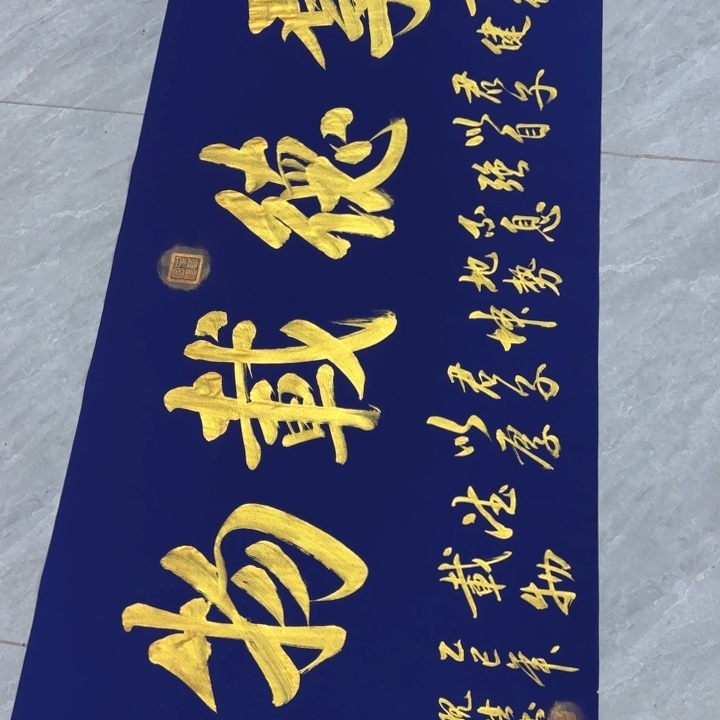 德載物
健君子以自强不息地势坤君子以厚德載物乙巳年